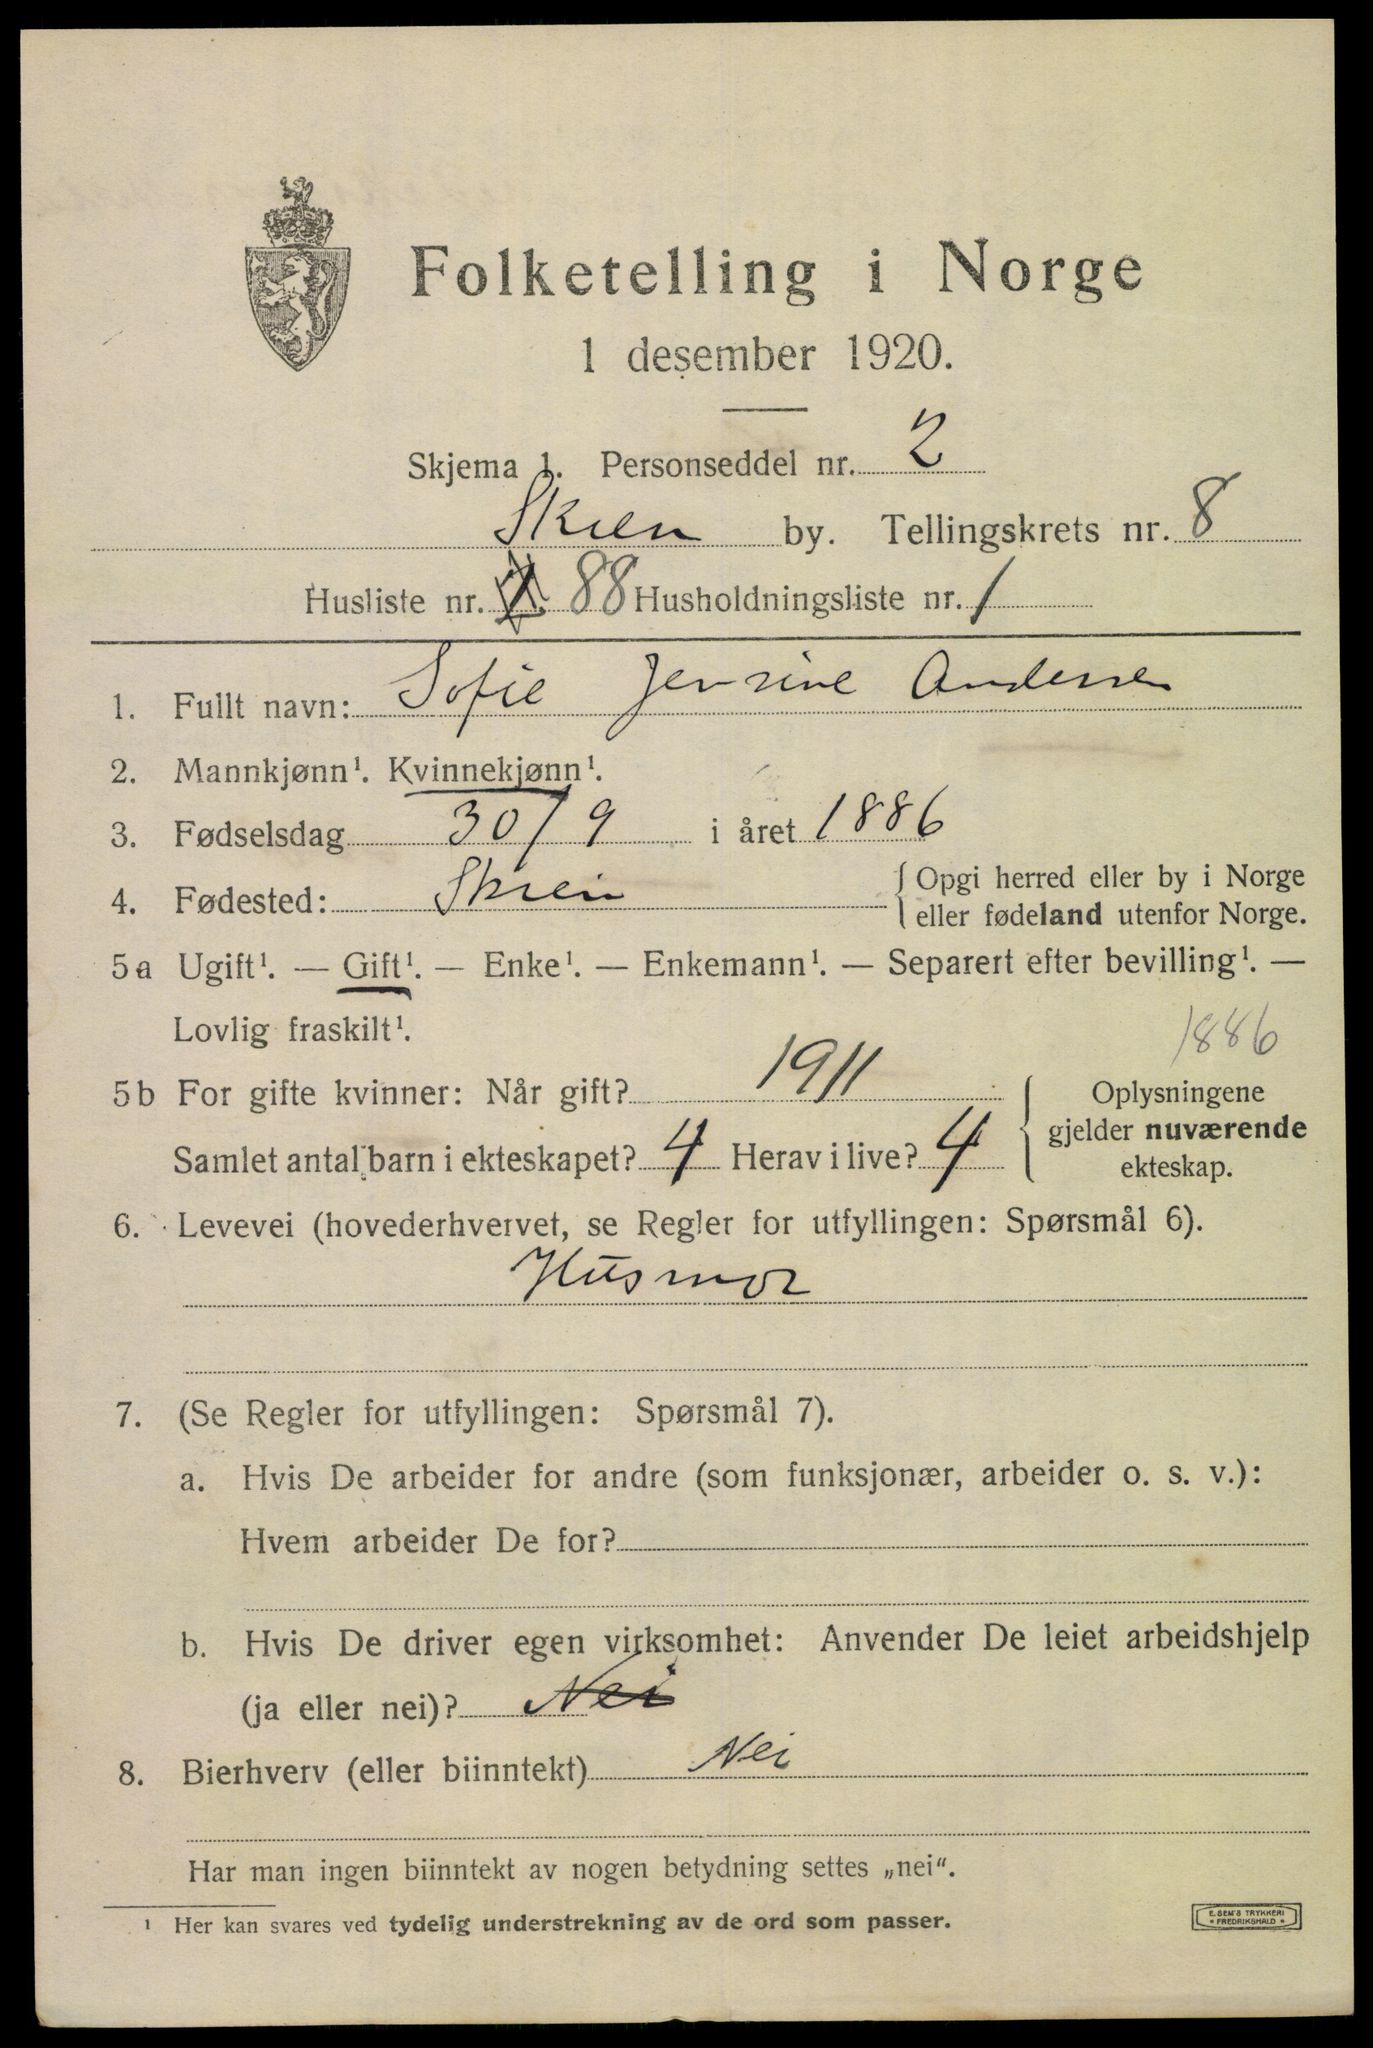 Folketelling i Norge
1 desember 1920.
Skjema 1. Personseddel nr. 2
Skien by. Tellingskrets nr. 8
Husliste nr. 88 Husholdningsliste nr. 1
1. Fullt navn: Sofie Jensine Andersen
2. Mannkjønn¹. Kvinnekjønn¹.
3. Fødselsdag 30/9 i året 1886
4. Fødested: Skien { Opgi herred eller by i Norge
eller fødeland utenfor Norge.
5a Ugift¹. — Gift¹. — Enke¹. — Enkemann¹. — Separert efter bevilling¹. —
Lovlig fraskilt¹.
1886
5b For gifte kvinner: Når gift? 1911
Samlet antal barn i ekteskapet? 4 Herav i live? 4
Oplysningene
gjelder nuværende
ekteskap.
6. Levevei (hovederhvervet, se Regler for utfyllingen: Spørsmål 6).
Husmor
7. (Se Regler for utfyllingen: Spørsmål 7).
a. Hvis De arbeider for andre (som funksjonær, arbeider o. s. v.):
Hvem arbeider De for?
b. Hvis De driver egen virksomhet: Anvender De leiet arbeidshjelp
(ja eller nei)? Nei
8. Bierhverv (eller biinntekt) Nei
Har man ingen biinntekt av nogen betydning settes „nei“.
¹ Her kan svares ved tydelig understrekning av de ord som passer.
E. SEM'S TRYKKERI
* FREDRIKSHALD *